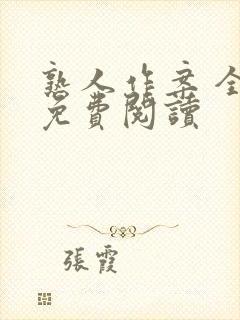 熟人作案全
免費閱讀
張霞